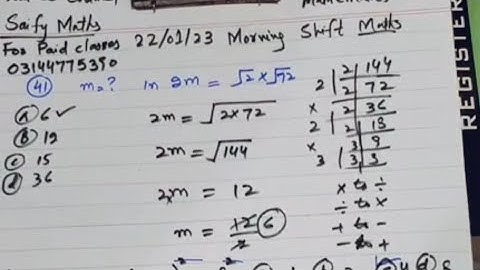 Saify Maths
For Paid classes
03144775390
22/01/23 Morning Shift Maths
REGISTER
41 m=? in 2m = √2 × √72
a 6 ✓
b 12
c 15
d 36
2m = √2×72
2m = √144
2m = 12
m = 12/2 6
2 | 2 | 144
2 | 72
× 2 | 36
2 | 2 | 18
× 3 | 9
3 | 3 | 3
× to ÷
÷ to ×
+ to -
- to +